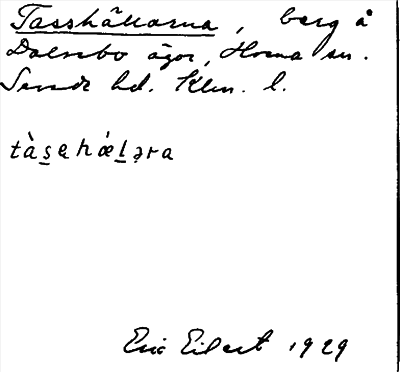 Tasshällarna, berg å
Dalsebo ägor, Horna sn.
Sunde hd. Klm. l.
tàs̲ehǽl̲əra
Eric Eilert 1929